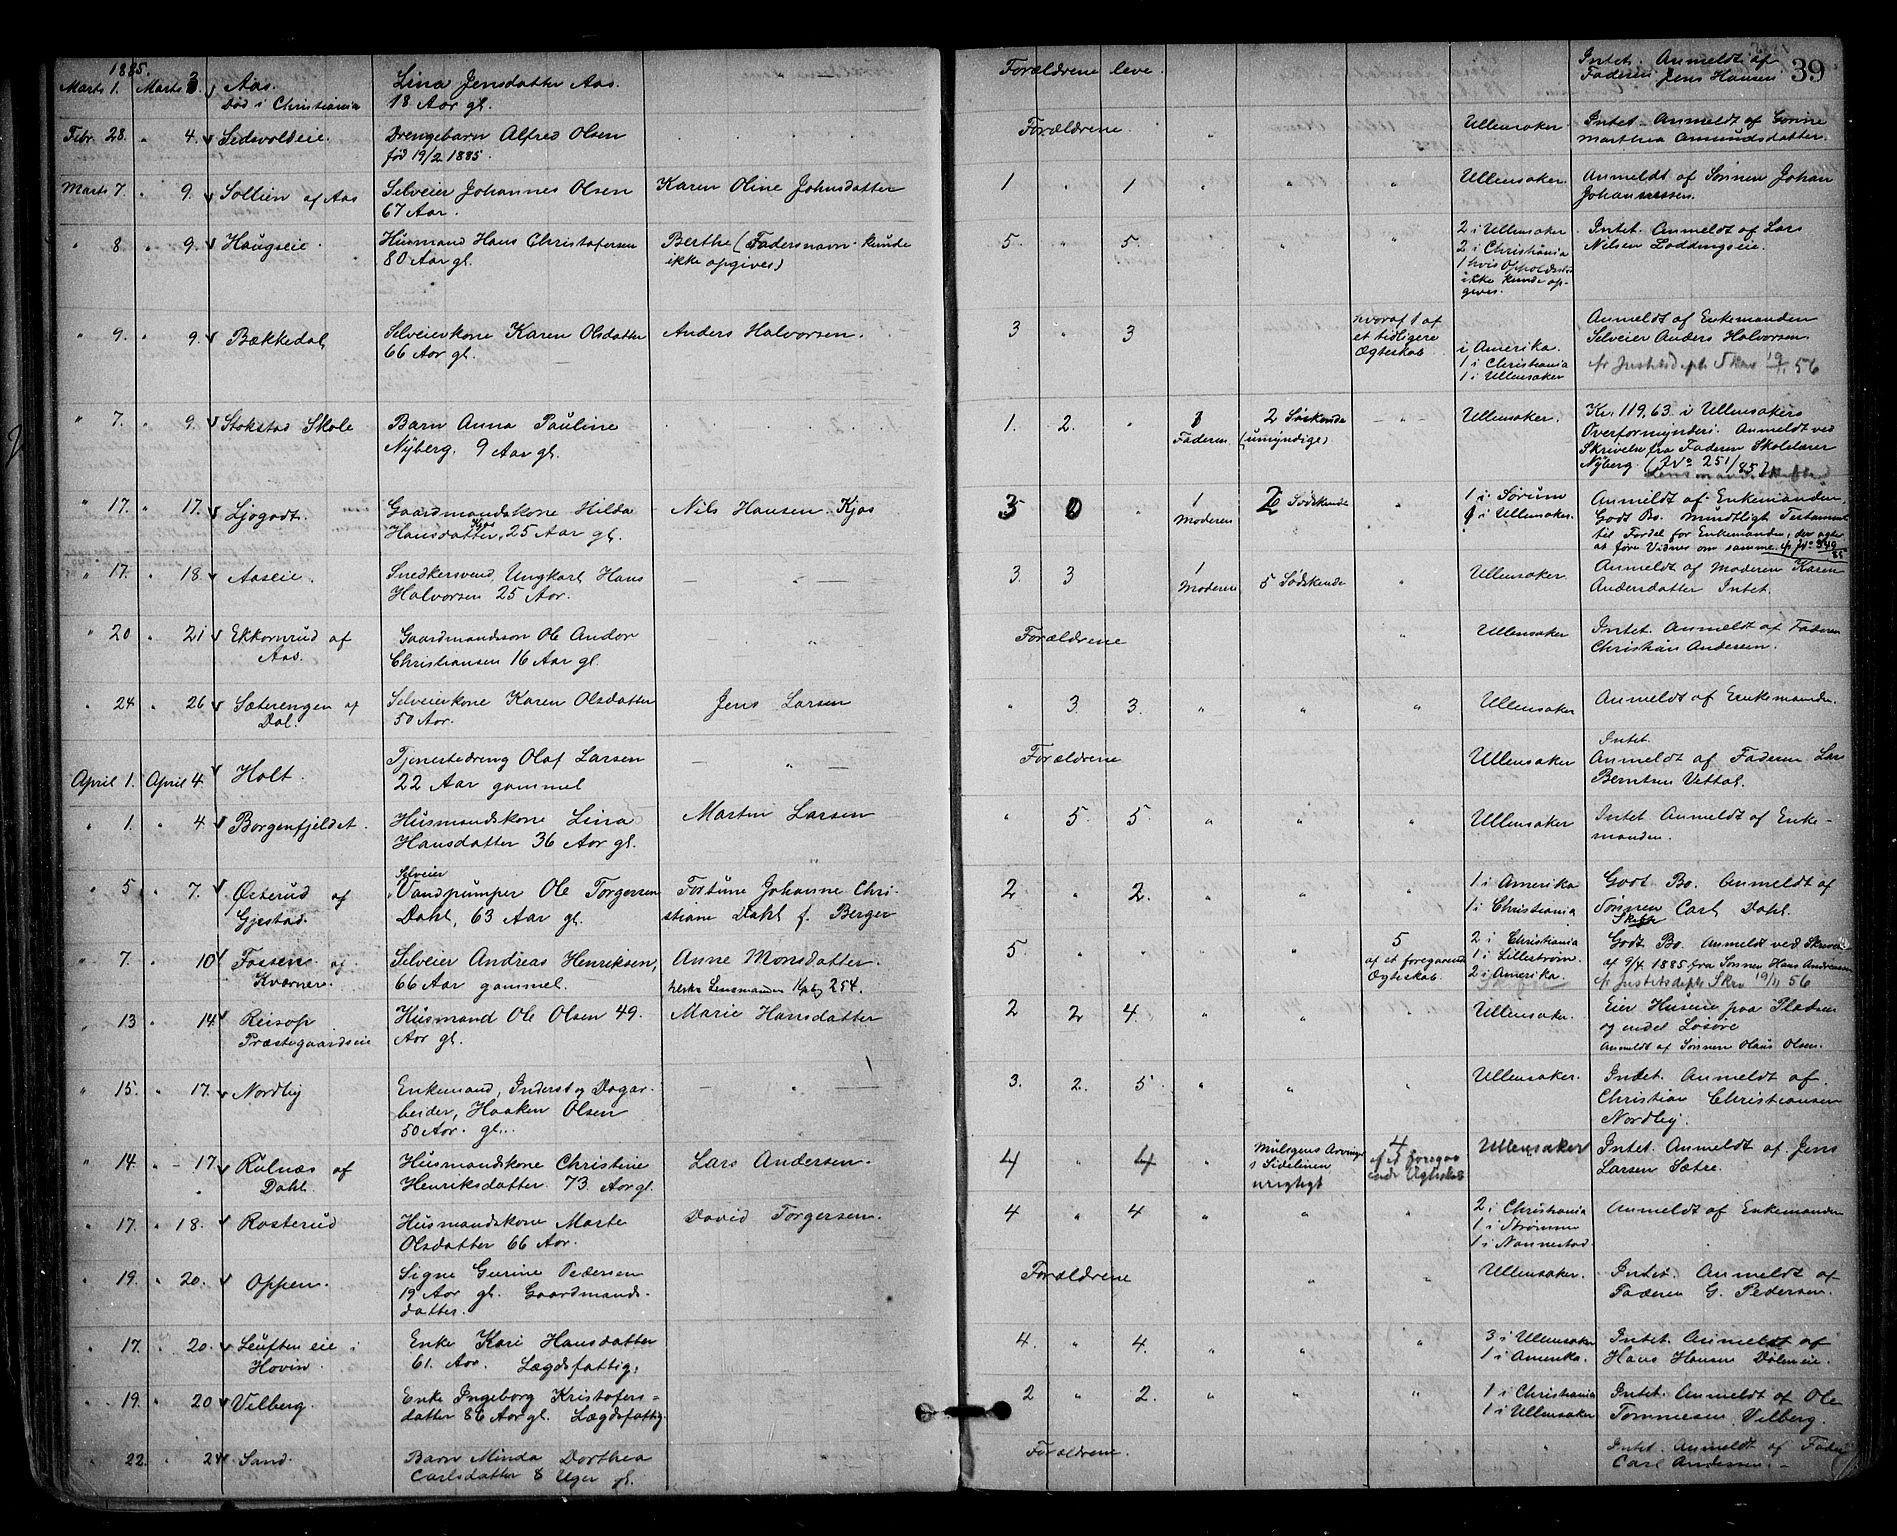 1885.
39
Marts 1. Marts 3 Aas. Lina Jensdatter Aas. Forældrene leve. Intet. Anmeldt af
Død i Christiania 18 Aar gl. Faderen Jens Hansen
Febr. 28. " 4. Sedsvoldeie. Drengebarn Alfred Olsen Forældrene. " Ullensaker Intet. Anmeldt af
født 19/2 1885. Marthea Amundsdatter.
Marts 7. " 9. Sollien af Aas Selveier Johannes Olsen Karen Oline Johnsdatter 1 " 1 " " " Ullensaker. Anmeldt af Sønnen Johan
67 Aar. Johannessen.
" 8. " 9. Haugseie. Husmand Hans Christofersen Berthe (Fadersnavn kunde 5. " 5. " " " 2 i Ullensaker Intet. Anmeldt af Lars
80 Aar gl. ikke opgives) 2 i Christiania Nilsen Loddingseie.
1 hvis Opholdssted
ikke kunde op-
gives.
" 9. " 9. Bækkedal Selveierkone Karen Olsdatter Anders Halvorsen. 3 " 3 hvoraf 1 af Anmeldt af Enkemanden
66 Aar gl. et tidligere i Amerika. Selveier Anders Halvorsen
Ægteskab 1 i Christiania fr Justitsdepts Skr 19/11 56
1 i Ullensaker
" 7. " 9. Stokstad Skole Barn Anna Pauline 1. 2. " 1 2 Søskende Ullensaker. Kr. 119,63 i Ullensakers
Nyberg. 9 Aar gl. Faderen (umyndige) Overformynderi. Anmeldt ved
Skrivelse fra Faderen Skolelærer
Nyberg. (J No 251/85)
" 17. " 17. Ljøgodt. Gaardmandskone Hilda Nils Hansen Kjos 3 0 " 1 2 Sødskende " 1 i Sørum Anmeldt af Enkemanden.
Hansdatter, Kjos 25 Aar gl. Moderen i Ullensaker. Godt Bo. Mundtligt Testament
til Fordel for Enkemanden, der agter
at føre Vidner om samme.
" 17. " 18. Aaseie. Snedkersvend, Ungkarl Hans — " — 3. 3 1 5 Sødskende " Ullensaker. Anmeldt af Moderen Karen
Halvorsen 25 Aar. Moderen Andersdatter Intet.
" 20 " 21 Ekkornrud af Gaardmandssøn Ole Andor — " Forældrene " Ullensaker Intet. Anmeldt af Faderen
Aas. Christiansen 16 Aar gl. Christian Andersen.
" 24. " 26 Sæterengen af Selveierkone Karen Olsdatter Jens Larsen " 3. 3. " " " Ullensaker Anmeldt af Enkemanden.
Dal. 50 Aar.
April 1. April 4. Holt. Tjenestedreng Olaf Larsen — " — Forældrene Ullensaker Intet.
22 Aar gammel Anmeldt af Faderen Lars
Berntsen Vettal.
" 1. " 4. Borgenfjeldet. Husmandskone Lina Martin Larsen " 5. 5. " " " Ullensaker Intet Anmeldt af Enke-
Hansdatter 36 Aar gl. manden.
" 5 " 7. Østerud af Selveier Vandpumper Ole Torgersen Fortune Johanne Chri- 2 " 2. " " 1 i Amerika Godt Bo. Anmeldt af
Gjestad. Dahl, 63 Aar gl. stiane Dahl f. Berger 1 i Christiania Sønnen Carl Dahl.
Skifte
" 7. " 10 Fossen af Selveier Andreas Henriksen, Anne Monsdatter. 5. " " " 5 2 i Christiania Godt Bo. Anmeldt ved Skrivelse
Kværner. 66 Aar gammel. af et foregaaende 1 i Lillestrøm. af 9/4 1885 fra Sønnen Hans Andreasen
Ægteskab 2 i Amerika. fr Justitsdepts Skr 19/11 56
" 13 " 14 Reisop Husmand Ole Olsen 49. Marie Hansdatter 2 2 4. " " " Ullensaker. Eier Husene paa Pladsen
Præstegaardseie Aar gl. og endel Løsøre
Anmeldt af Sønnen Olaus Olsen.
" 15. " 17. Nordby Enkemand, Inderst og Dagar- — " — 3. 2. 5. " " " Ullensaker. Intet. Anmeldt af
beider, Haaken Olsen Christian Christiansen
50 Aar gl. Nordby.
" 14. " 17. Rulnæs af Husmandskone Christine Lars Andersen. 4 " 4 " Mulgens Arvinge 4 Ullensaker Intet. Anmeldt af Jens
Dahl. Henriksdatter 73 Aar gl. i Sidelinien Larsen Sætre.
urigtigt
" 17. " 18. Rosterud Husmandskone Marte David Torgersen. 4 " 4 " " " 2 i Christiania Anmeldt af Enkemanden
Olsdatter 66 Aar. 1 i Strømmen
1 i Nannestad.
" 19. " 20. Oppen. Signe Gurine Pedersen Forældrene " " Ullensaker. Intet. Anmeldt af
19 Aar gl. Gaardmands- Faderen G. Pedersen.
datter.
" 17. " 20. eie i Enke Kari Hansdatter 4. " 4. " " " 3 i Ullensaker Intet. Anmeldt af
Hovin. 61. Aar. Lægdsfattig. 1 i Amerika. Hans Hansen Dølmeie.
" 19. " 20 Vilberg. Enke Ingeborg Kristofers- 2 " 2. " " " 1 i Christiania Intet. Anmeldt af Ole
datter 86 Aar gl. Lægdsfattig 1 i Ullensaker Tommesen Vilberg.
" 22. " 24 Sand. Barn Minda Dorthea Forældrene. " Intet. Anmeldt af Fader
Carlsdatter 8 Uger gl. Carl Andersen.